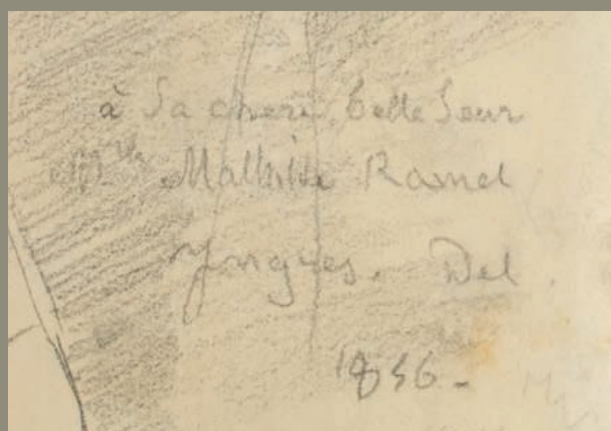 à Sa chere belle Seur
M^lle Mathilde Ramel
Jngres. Del.
1856 -